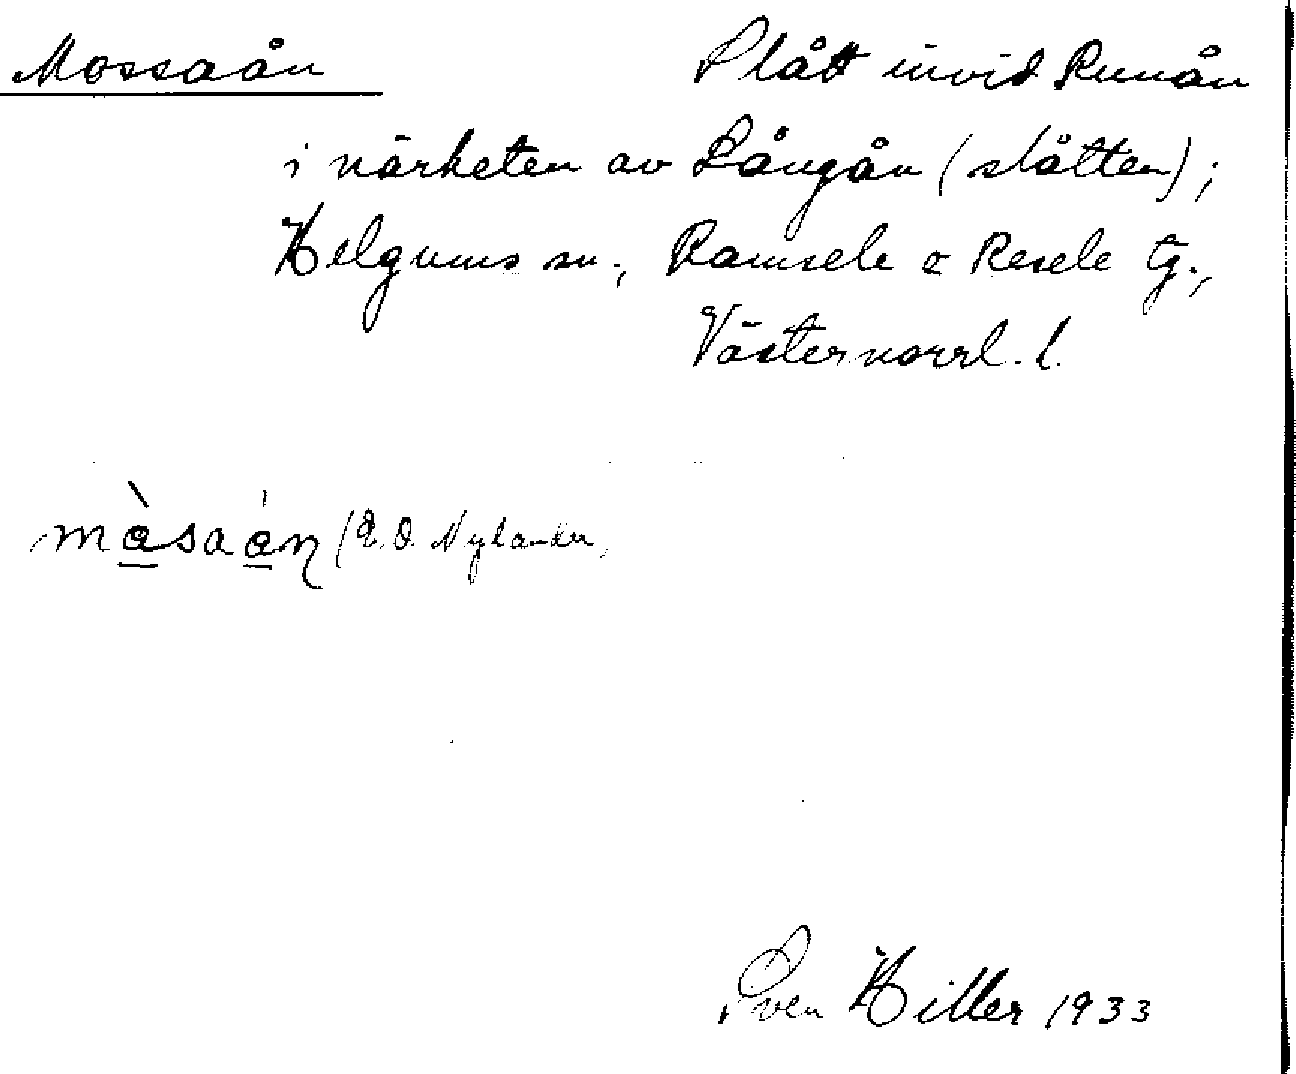 Mossaån Slått invid Runån
i närheten av Långån (slåtten);
Helgums sn., Ramsele o Resele tg.,
Västernorrl. l.
måsaån (E. O. Nylander,
Sven Hiller 1933